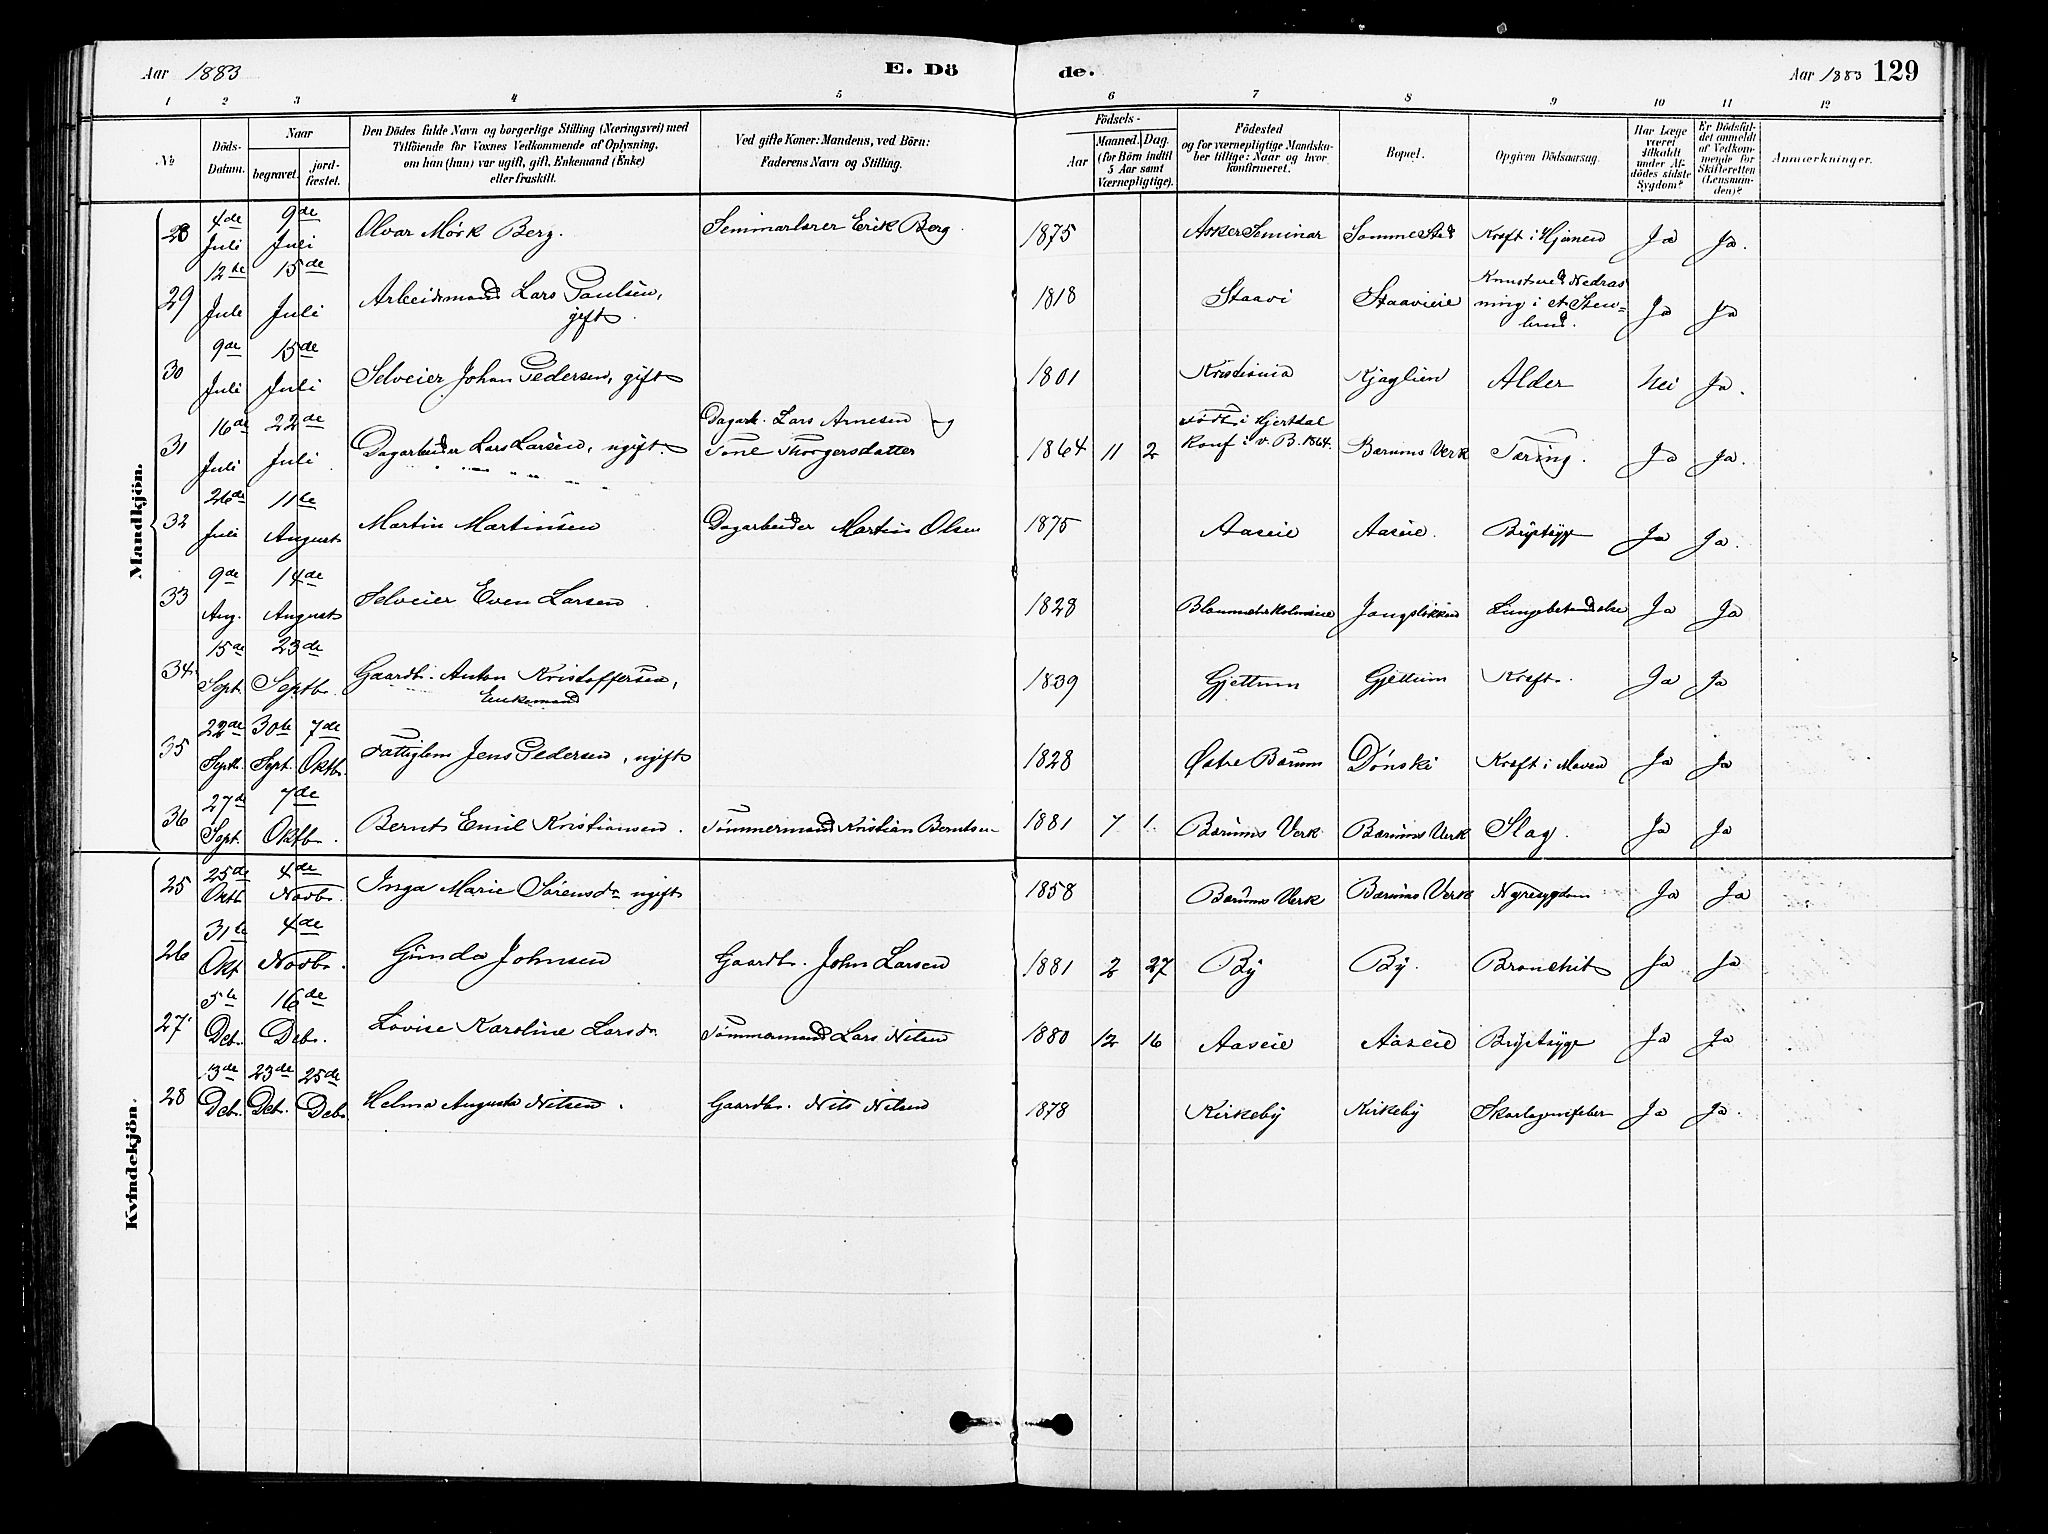 Aar 1883
E. Dö
de.
Aar 1883 129
1 2 3 4 5 6 7 8 9 10 11 12
№
Döds-Datum.
Naar
begravet.
jord-fæstet.
Den Dödes fulde Navn og borgerlige Stilling (Næringsvei) med
Tilföiende for Voxnes Vedkommende af Oplysning,
om han (hun) var ugift, gift, Enkemand (Enke)
eller fraskilt.
Ved gifte Koner: Mandens, ved Börn:
Faderens Navn og Stilling.
Födsels-
Aar
Maaned. Dag.
(for Börn indtil
5 Aar samt
Værnepligtige).
Födested
og for værnepligtige Mandska-
ber tillige: Naar og hvor
konfirmeret.
Bopæl.
Opgiven Dödsaarsag.
Har Læge
været
tilkaldt
under Af-
dödes sidste
Sygdom?
Er Dödsfal-
det anmeldt
af Vedkom-
mende for
Skifteretten
(Lensman-
den)?
Anmærkninger.
Mandkjön.
28 4de Juli 9de Juli Olvar Mörk Berg. Seminarlærer Erik Berg 1875 Asker Seminar Samme Sted Kræft i Hjernen Ja Ja.
29 12te Juli 15de Juli Arbeidsmand Lars Paulsen, gift. 1818 Staavi Staavieie Ja Ja
ning i et Sten=
brud.
30 9de Juli 15de Juli Selveier Johan Pedersen, gift 1801 Kristiania Kjaglien Alder Nei Ja.
31 16de Juli 22de Juli Dagarbeider Lars Larsen, ugift. Dagarb. Lars Arnesen og
Tone Thorgersdatter 1864 11 2 Födt i Hjertdal
Konf i v. B. 1864. Bærums Verk Tæring. Ja Ja.
32 26de Juli 11te August Martin Martinsen Dagarbeider Martin Olsen 1875 Aaseie Aaseie. Brystsyge Ja Ja.
33 9de Aug. 14de August Selveier Even Larsen 1828 Jongslökken Lungebetændelse Ja Ja
34 15de Sept. 23de Septbr. Gaardbr. Anton Kristoffersen,
Enkemand 1839 Gjettum Gjettum Kræft. Ja Ja
35 22de Septbr. 30te Sept. 7de Oktbr. Fattiglem Jens Pedersen, ugift 1828 Østre Bærum Dönski Kræft i Maven Ja Ja
36 27de Sept. 7de Oktbr. Bernt Emil Kristiansen. Tömmermand Kristian Berntsen 1881 7 1. Bærums Verk Bærums Verk Slag. Ja Ja
Kvindekjön.
25 25de Oktb. 4de Novbr. Inga Marie Sörensdr ugift 1858 Bærums Verk Bærums Verk Nyresygdom Ja Ja
26 31te Okt. 4de Novbr. Gunda Johnsen Gaardbr. John Larsen 1881 2 27 By By. Bronchit Ja Ja
27 5te Debr. 16de Debr. Lovise Karoline Larsdr. Tömmermand Lars Nilsen 1880 12 16 Aaseie Aaseie Brystsyge Ja Ja
28 13de Debr. 23de Debr. 25de Debr. Helma Augusta Nilsen. Gaardbr. Nils Nilsen 1878 Kirkeby Kirkeby Skarlagensfeber Ja Ja.